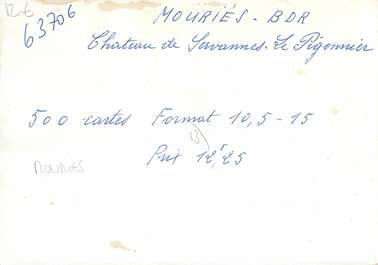 12 €
63706
MOURIÉS - BDR
Chateau de Servannes - Le Pigonnier
500 cartes Format 10,5 - 15
(3)
Prix 12,25
MOURIÉS